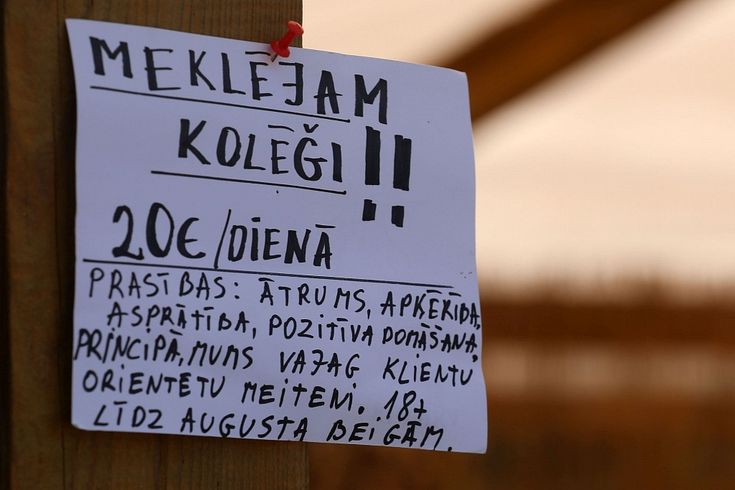 MEKLĒJAM
KOLĒĢI!!
20€/DIENĀ
PRASĪBAS: ĀTRUMS, APĶĒRĪBA,
ASPRĀTĪBA, POZITĪVA DOMĀŠANA,
PRINCIPĀ, MUMS VAJAG KLIENTU
ORIENTĒTU MEITENI. 18+
LĪDZ AUGUSTA BEIGĀM.